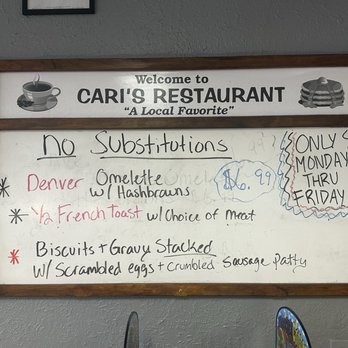 Welcome to
CARI'S RESTAURANT
"A Local Favorite"
No Substitutions
* Denver Omelette
w/ Hashbrowns
$6.99
* 1/2 French Toast w/ Choice of Meat
* Biscuits + Gravy Stacked
w/ Scrambled eggs + Crumbled Sausage Patty
ONLY
MONDAY
THRU
FRIDAY